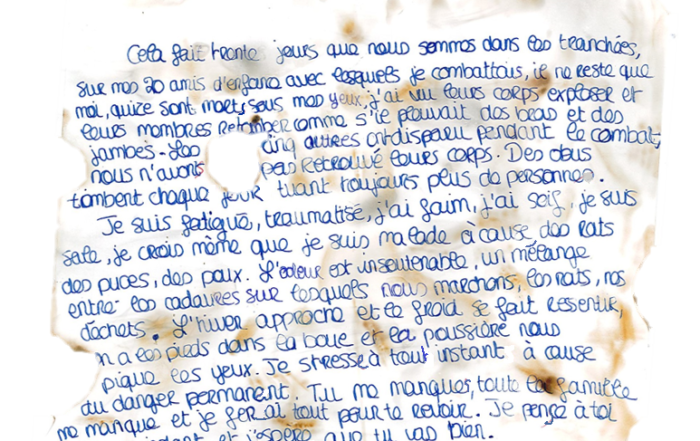 Cela fait trente jours que nous sommes dans les tranchées,
sur mes 20 amis d'enfance avec lesquels je combattais, il ne reste que
moi, quize sont morts sous mes yeux, j'ai vu leurs corps exploser et
leurs membres retomber comme s'il pleuvait des bras et des
jambes. Les cinq autres ont disparu pendant le combat,
nous n'avons pas retrouvé leurs corps. Des obus
tombent chaque jour tuant toujours plus de personnes.
Je suis fatigué, traumatisé, j'ai faim, j'ai soif, je suis
sale, je crois même que je suis malade à cause des rats
des puces, des poux. L'odeur est insoutenable, un mélange
entre les cadavres sur lesquels nous marchons, les rats, nos
déchets. L'hiver approche et le froid se fait ressentir,
n a les pieds dans la boue et la poussière nous
pique les yeux. Je stresse à tout instant à cause
du danger permanent. Tu me manques, toute la famille
me manque et je ferai tout pour te revoir. Je pense à toi
et j'espère que tu vas bien.